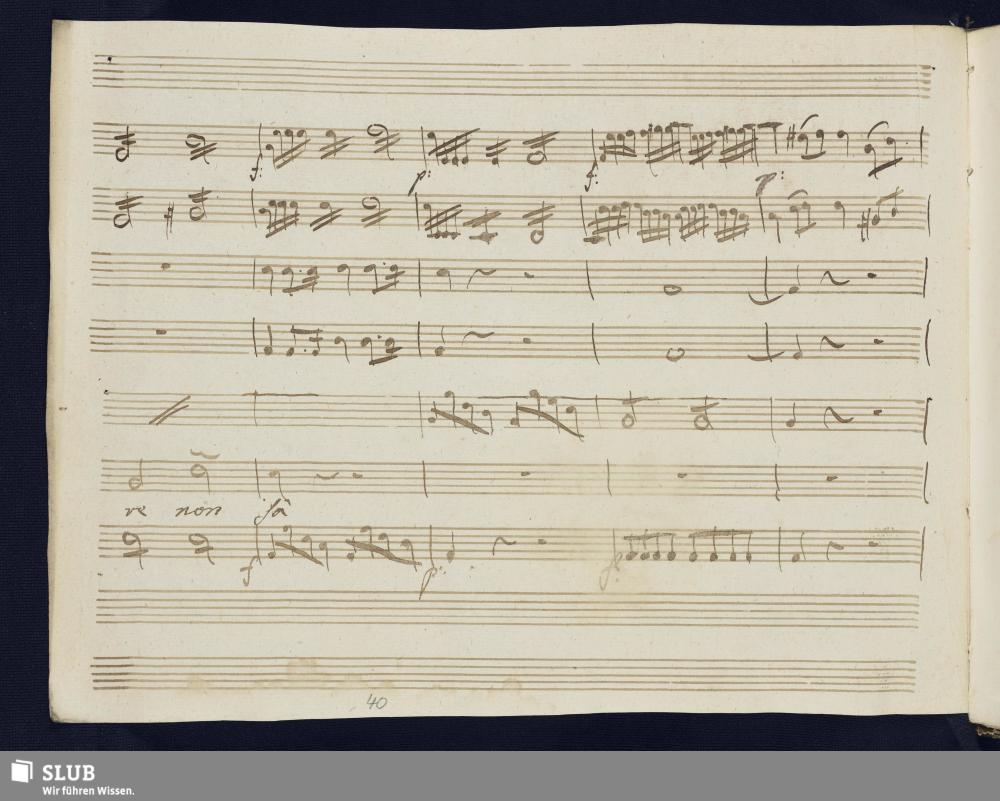 f: p: f: p:
re non sà
f p: fp
40
SLUB
Wir führen Wissen.